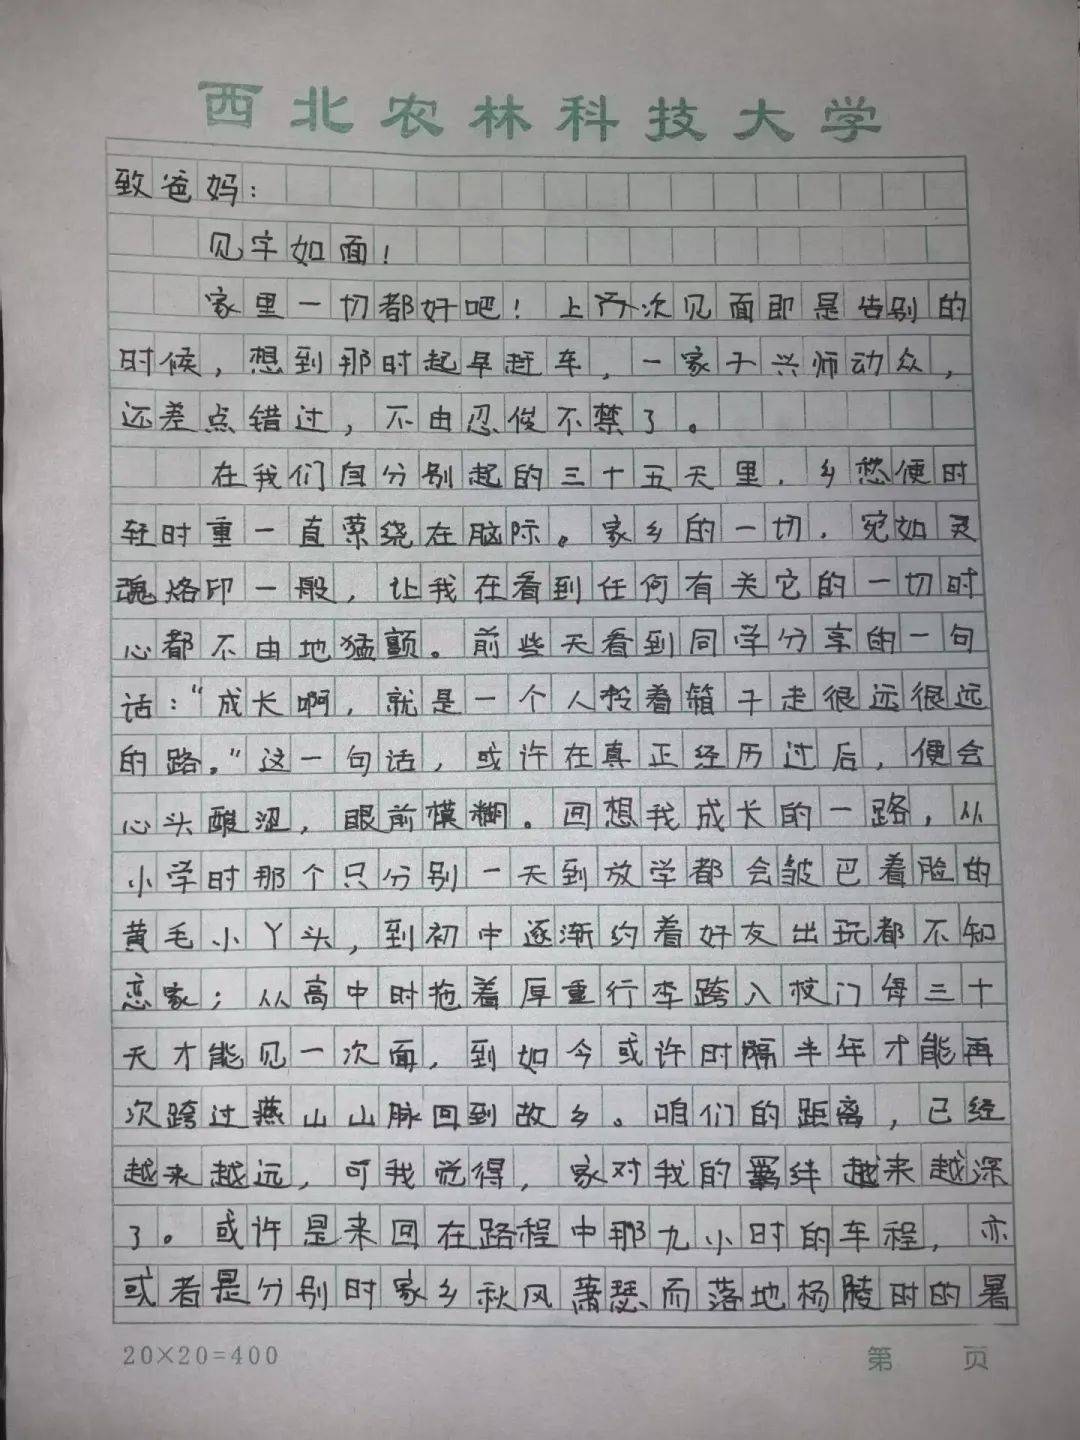 西北农林科技大学
致爸妈：
见字如面！
家里一切都好吧！上次见面即是告别的
时候，想到那时起早赶车，一家子兴师动众，
还差点错过，不由忍俊不禁了。
在我们自分别起的三十五天里，乡愁便时
轻时重一直萦绕在脑际。家乡的一切，宛如灵
魂烙印一般，让我在看到任何有关它的一切时
心都不由地猛颤。前些天看到同学分享的一句
话：“成长啊，就是一个人拎着箱子走很远很远
的路。”这一句话，或许在真正经历过后，便会
心头酸涩，眼前模糊。回想我成长的一路，从
小学时那个只分别一天到放学都会皱巴着脸的
黄毛小丫头，到初中逐渐约着好友出玩都不知
恋家；从高中时拖着厚重行李跨入校门每三十
天才能见一次面，到如今或许时隔半年才能再
次跨过燕山山脉回到故乡。咱们的距离，已经
越来越远，可我觉得，家对我的羁绊越来越深
了。或许是来回在路程中那九小时的车程，亦
或者是分别时家乡秋风萧瑟而落地杨陵时的暑
20×20=400
第 页